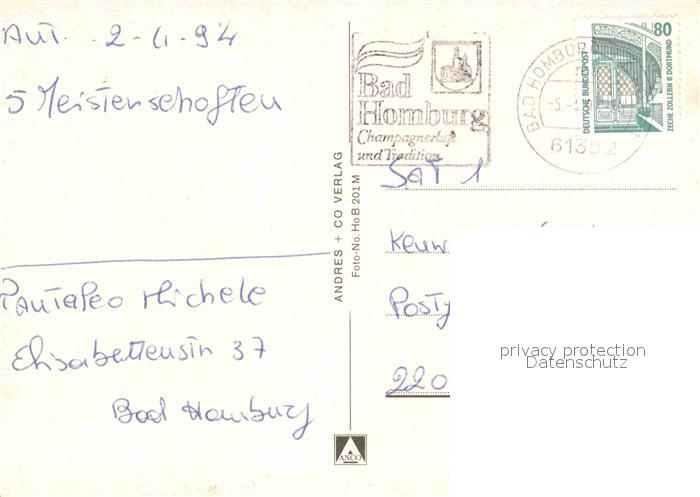 Ant. 2-4-94
5 Meisterschaften
Pantaleo Michele
Elisabettensin 37
Bad Homburg
ANDRES + CO VERLAG
Foto-No. Ho B 201 M
ANCO
Bad
Homburg
Champagnerluft
und Tradition
BAD HOMBURG
-5.-
61352
80
DEUTSCHE BUNDESPOST
ZECHE ZOLLERN II DORTMUND
SAT 1
Kenw
Postf
220
privacy protection
Datenschutz